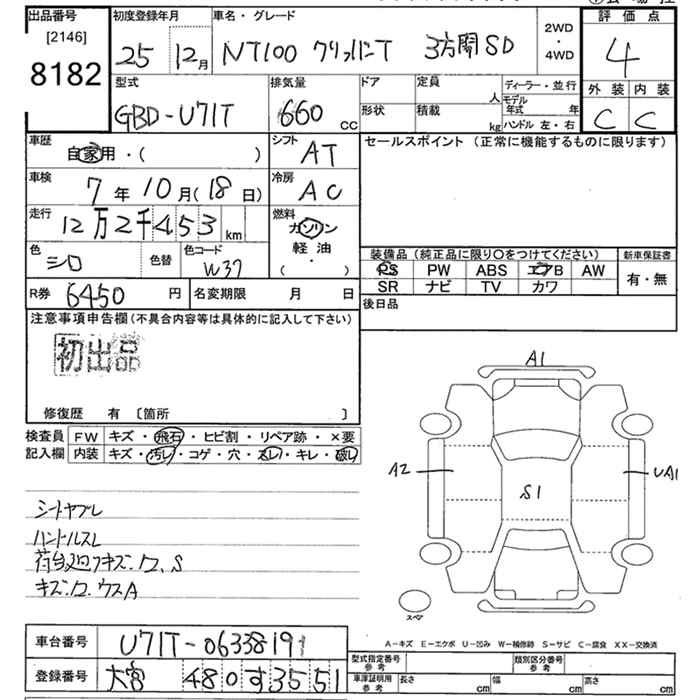 出品番号 初度登録年月 車名・グレード 評価点
[2146]
8182
25 12月 NT100 クリッパーT 3方開SD 2WD・4WD 4
型式 排気量 ドア 定員 人 ディーラー・並行 外装 内装
GBD-U71T 660 cc 形状 積載 kg モデル年式 年 ハンドル 左・右 C C
車歴 自家用・( ) シフト AT セールスポイント (正常に機能するものに限ります)
車検 7年10月(18日) 冷房 AC
走行 12万2千453km 燃料 ガソリン 軽油 ( ・ )
色 シロ 色替 色コード W37
装備品 (純正品に限り○をつけてください) 新車保証書
PS PW ABS エアB AW 有・無
SR ナビ TV カワ
R券 6450円 名変期限 月 日 後日品
注意事項申告欄(不具合内容等は具体的に記入して下さい)
初出品
修復歴 有 〔箇所 〕
検査員 FW キズ・飛石・ヒビ割・リペア跡・×要
記入欄 内装 キズ・汚レ・コゲ・穴・スレ・キレ・破レ
シートヤブレ
ハンドルスレ
荷台廻フキズ、ワ、S
キズ、ワ、ウスA
A1
A2
S1
UA1
スペア
A-キズ E-エクボ U-凹み W-補修跡 S-サビ C-腐食 XX-交換済
車台番号 U71T-0633819
型式指定番号 参考 類別区分番号 参考
登録番号 大宮 480す3551
車庫証明用 参考 長さ cm 幅 cm 高さ cm